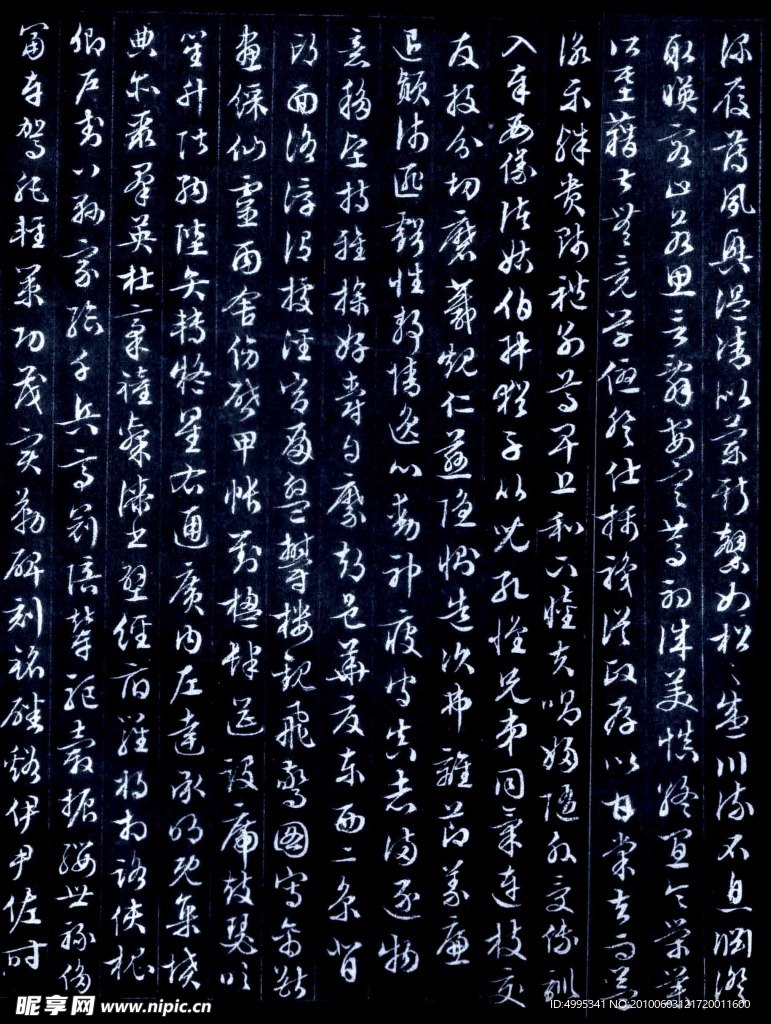 深履薄夙興溫凊似蘭斯馨如松之盛川流不息淵澄
取暎容止若思言辭安定篤初誠美慎終宜令榮業
所基藉甚無竟學優登仕攝職從政存以甘棠去而益
詠樂殊貴賤禮別尊卑上和下睦夫唱婦隨外受傅訓
入奉母儀諸姑伯叔猶子比兒孔懷兄弟同氣連枝交
友投分切磨箴規仁慈隱惻造次弗離節義廉
退顛沛匪虧性靜情逸心動神疲守真志滿逐物
意移堅持雅操好爵自縻都邑華夏東西二京背
邙面洛浮渭據涇宮殿盤鬱樓觀飛驚圖寫禽獸
畫綵仙靈丙舍傍啟甲帳對楹肆筵設席鼓瑟吹
笙升階納陛弁轉疑星右通廣內左達承明既集墳
典亦聚群英杜稾鍾隸漆書壁經府羅將相路俠槐
卿戶封八縣家給千兵高冠陪輦驅轂振纓世祿侈
富車駕肥輕策功茂實勒碑刻銘磻溪伊尹佐時
昵享网 www.nipic.cn
ID:4995341 NO:20100603121720011600